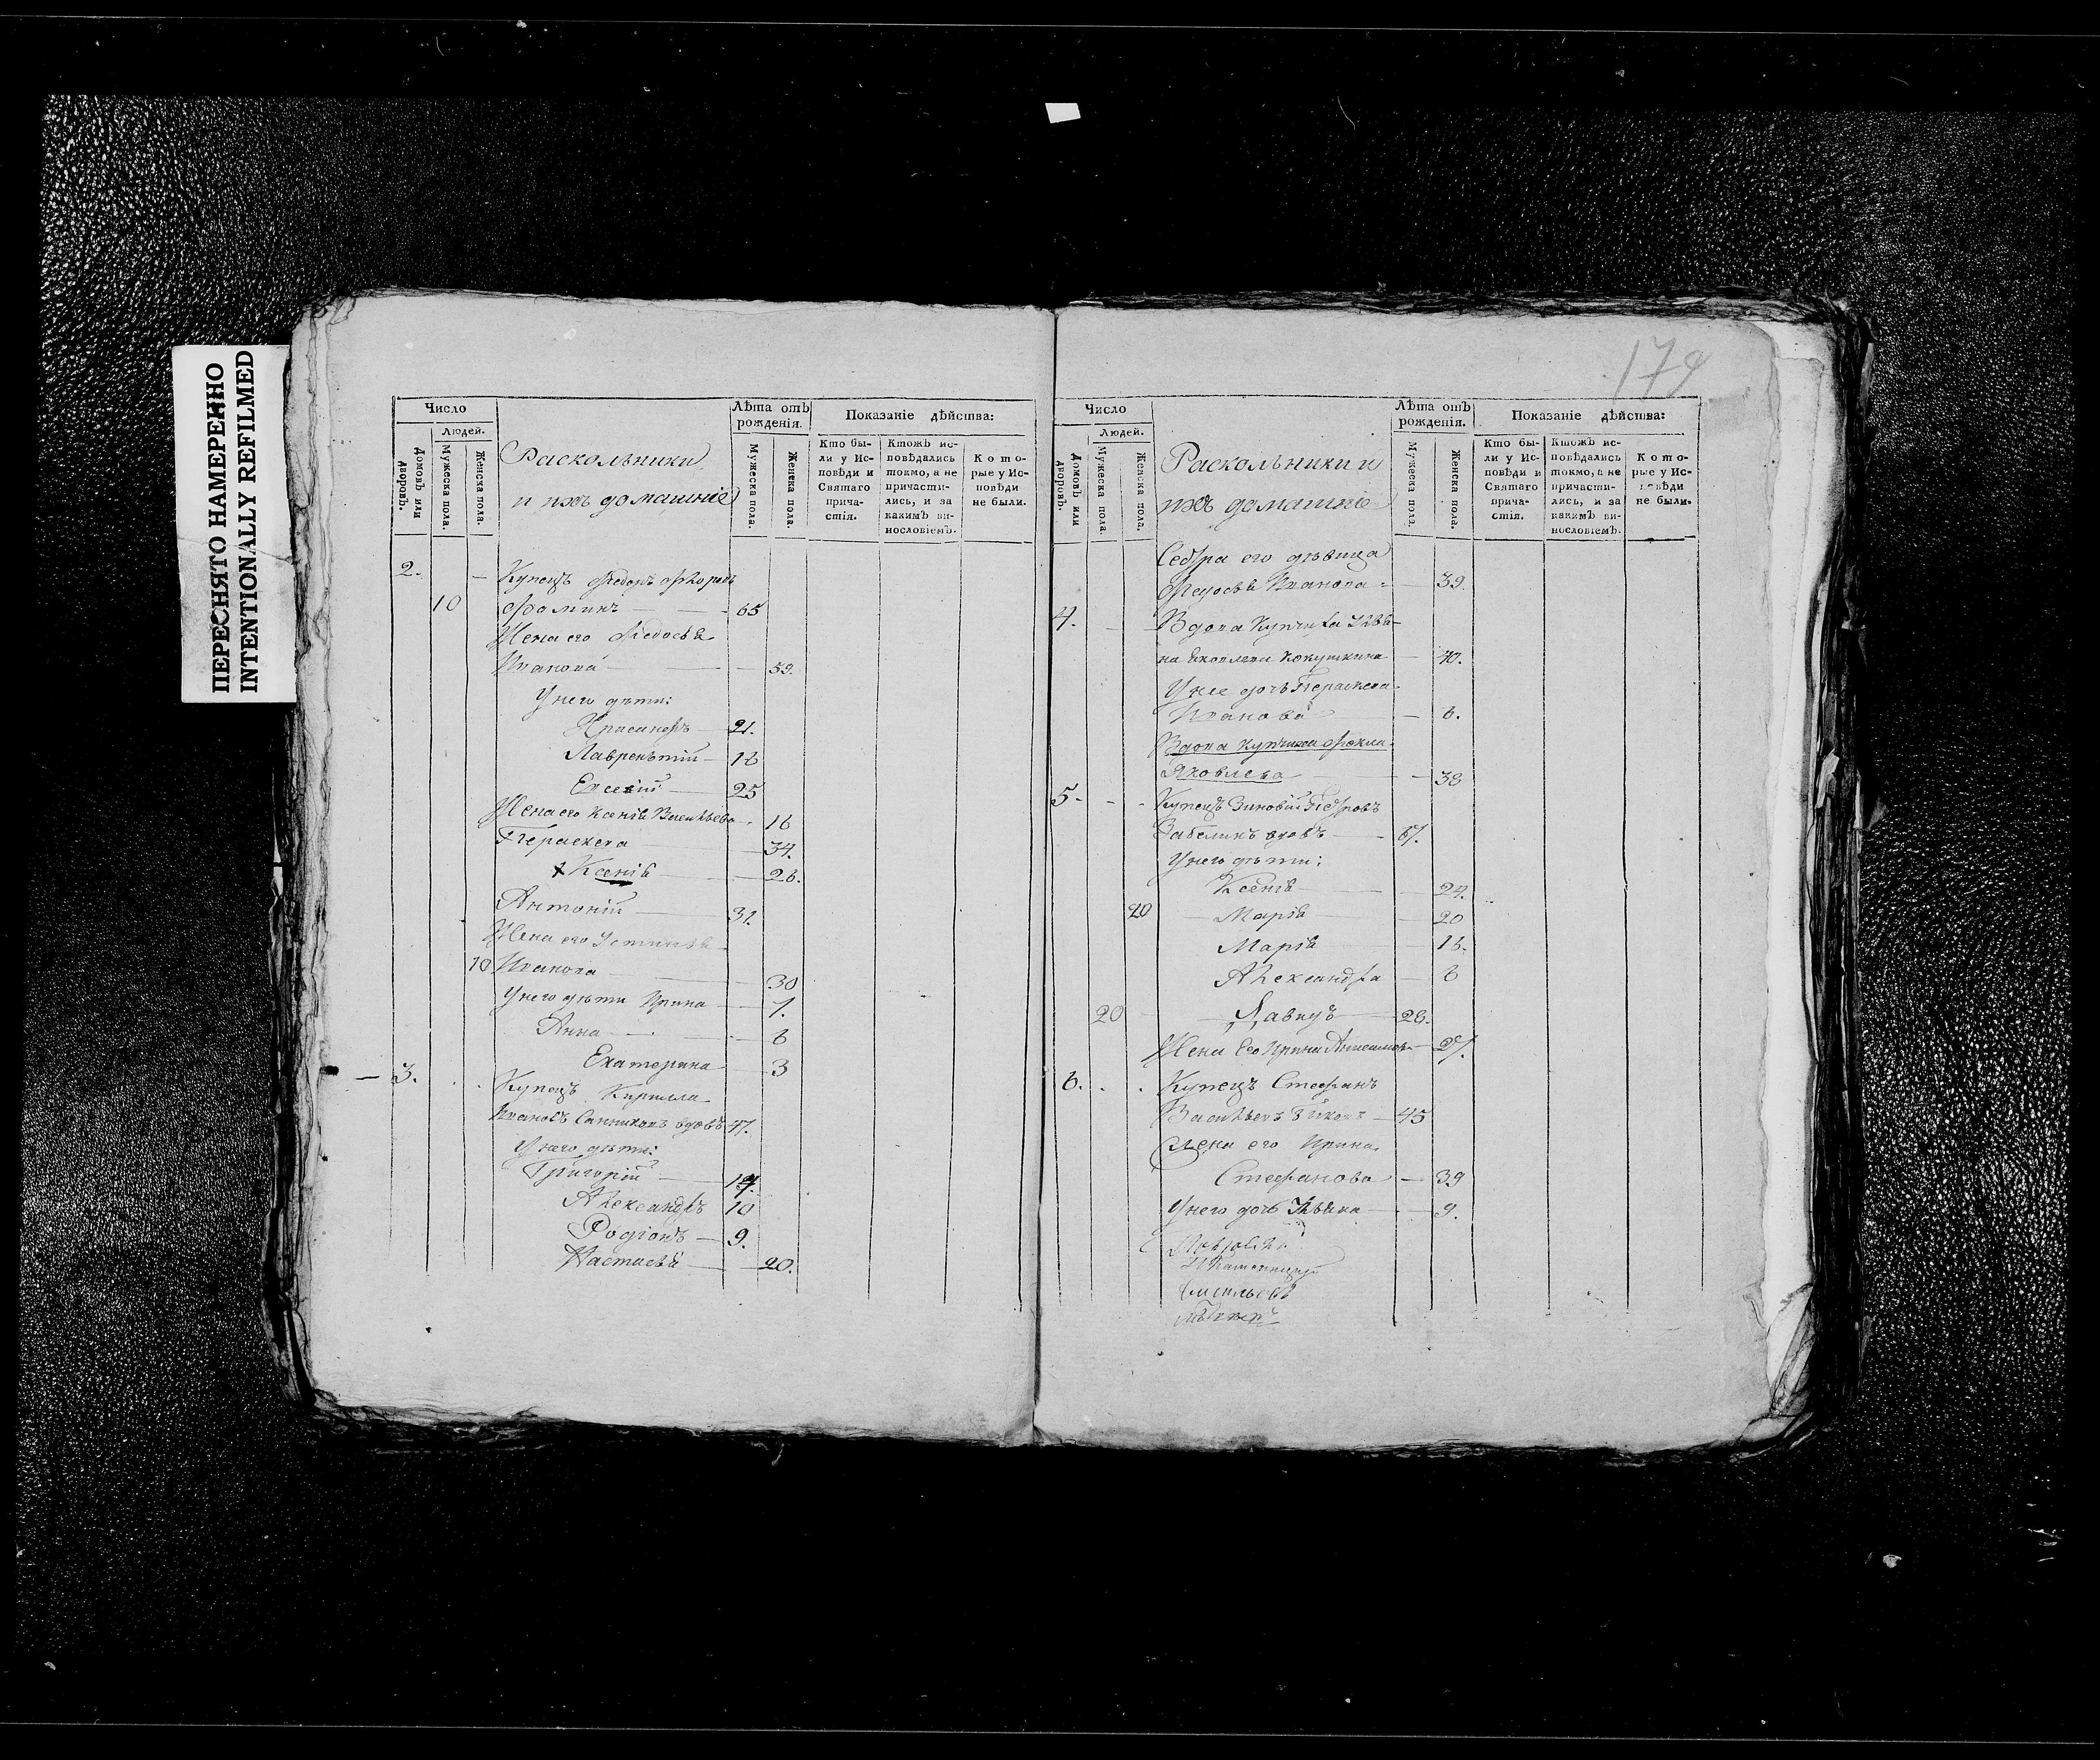 ПЕРЕСНЯТО НАМЕРЕННО
INTENTIONALLY REFILMED
179
Число
Людей.
Домовъ или дворовъ.
Мужеска пола.
Женска пола.
Раскольники
и ихъ домашніе
Лѣта отъ рожденія.
Мужеска пола.
Женска пола.
Показаніе дѣйства:
Кто были у Исповѣди и Святаго причастія.
Ктожъ исповѣдались токмо, а не причастились, и за какимъ винословіемъ.
Которые у Исповѣди не были.
2. Купецъ Федоръ
10 Фоминъ 65
Жена его Федосья
Иванова 59.
У него дѣти:
Хрисанфъ 21.
Лаврентій 16
Евсевій 25
Жена его Ксенія Васильева 16
Параскева 34.
Ксенія 26.
Антоній 31.
Жена его Устинья
10 Иванова 30
У него дѣти Ирина 7.
Анна 6
Екатерина 3
3. Купецъ Кирилла
Ивановъ Санниковъ вдовъ 47.
У него дѣти:
Григорій 14.
Александръ 10
Родіонъ 9.
Настасья 20.
Число
Людей.
Домовъ или дворовъ.
Мужеска пола.
Женска пола.
Раскольники и
ихъ домашніе
Лѣта отъ рожденія.
Мужеска пола.
Женска пола.
Показаніе дѣйства:
Кто были у Исповѣди и Святаго причастія.
Ктожъ исповѣдались токмо, а не причастились, и за какимъ винословіемъ.
Которые у Исповѣди не были.
Сестра его дѣвица
Федосья Иванова 39.
4. Вдова Купчиха Улья-
на Яковлева Кокушкина 40.
У нее дочь Параскева
Иванова 6.
Вдова купчиха Фекла
Яковлева 38
5. Купецъ Зиновій Петровъ
Забелинъ вдовъ 67.
У него дѣти:
Ксенія 24.
20 Марія 20
Марія 16.
Александра 6
20 Давидъ 28.
Жена Его Ирина 27.
6. Купецъ Стефанъ
Васильевъ 45
Жена его Ирина
Стефанова 39
У него дочь Ульяна 9.